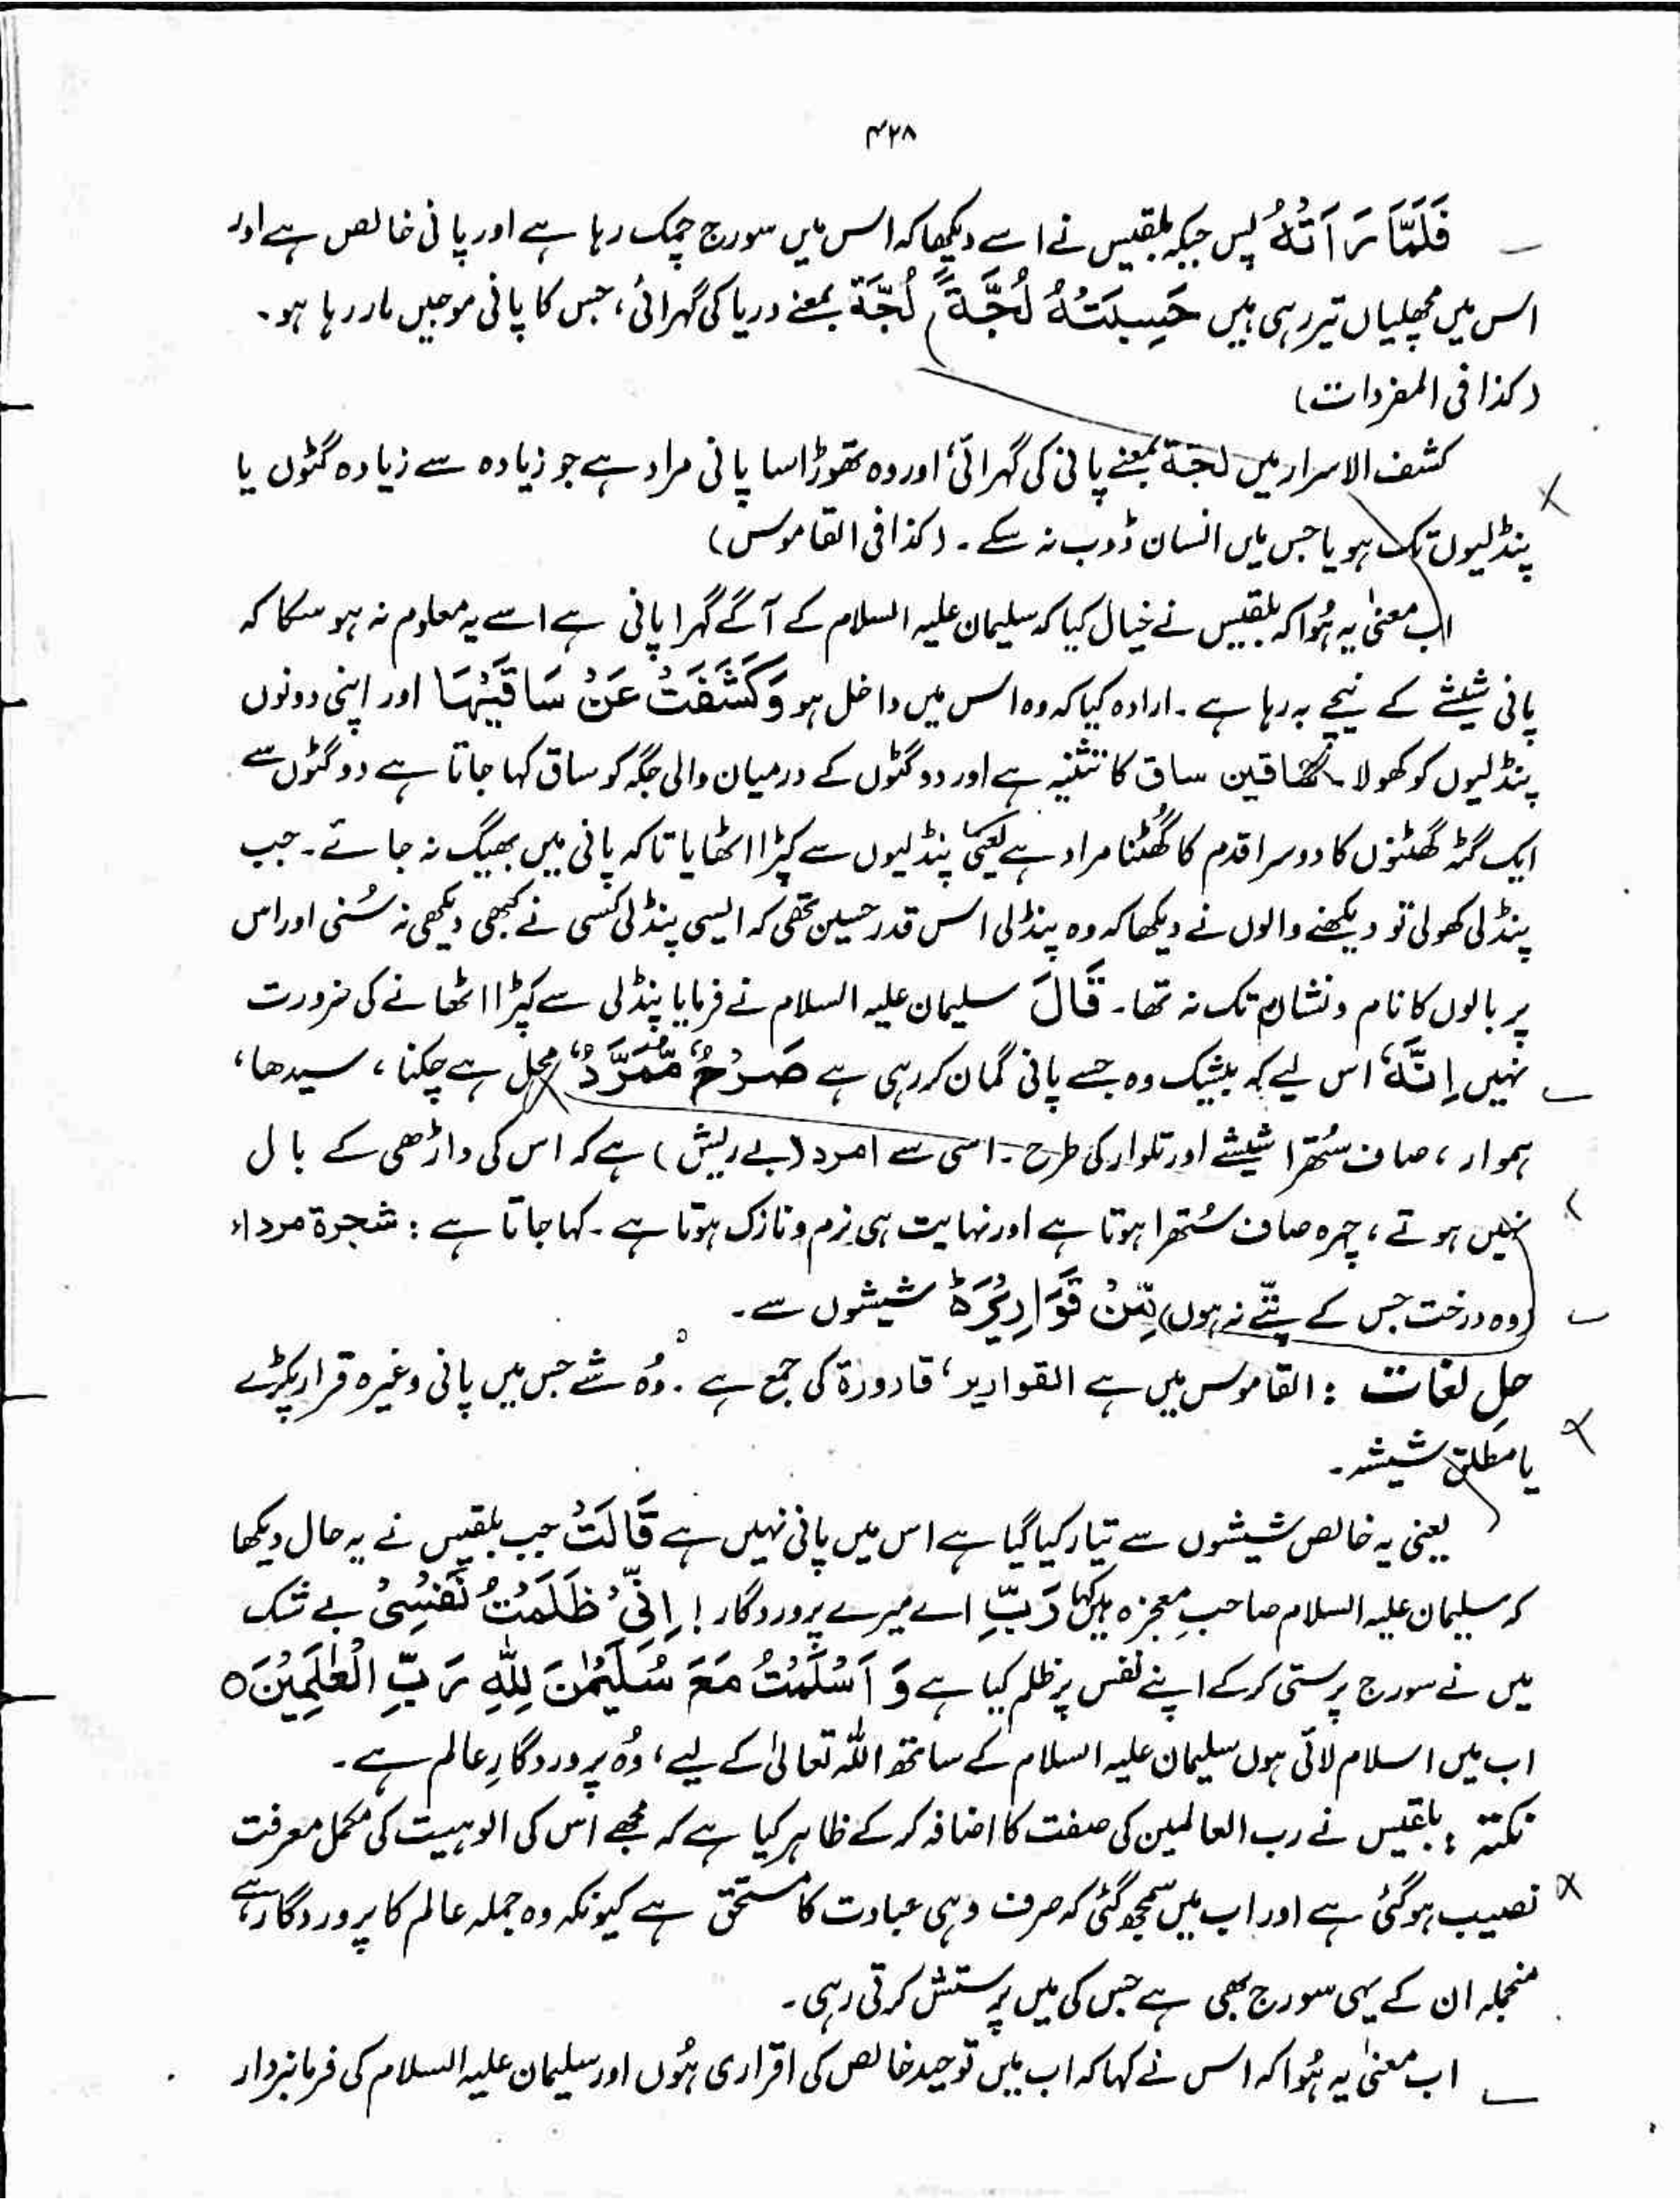 ۴۲۸
فَلَمَّا رَاَتْهُ پس جبکہ بلقیس نے اسے دیکھا کہ اس میں سورج چمک رہا ہے اور پانی خالص ہے اور
اس میں مچھلیاں تیر رہی ہیں حَسِبَتْهُ لُجَّةً لُجَّة بمعنے دریا کی گہرائی، جس کا پانی موجیں مار رہا ہو۔
(کذا فی المفردات)
کشف الاسرار میں لجۃ بمعنے پانی کی گہرائی اور وہ تھوڑا سا پانی مراد ہے جو زیادہ سے زیادہ گٹوں یا
پنڈلیوں تک ہو یا جس میں انسان ڈوب نہ سکے۔ (کذا فی القاموس)
اب معنیٰ یہ ہُوا کہ بلقیس نے خیال کیا کہ سلیمان علیہ السلام کے آگے گہرا پانی ہے اسے یہ معلوم نہ ہو سکا کہ
پانی شیشے کے نیچے بہ رہا ہے۔ ارادہ کیا کہ وہ اس میں داخل ہو وَكَشَفَتْ عَنْ سَاقَيْهَا اور اپنی دونوں
پنڈلیوں کو کھولا۔ ساقین ساق کا تثنیہ ہے اور دو گٹوں کے درمیان والی جگہ کو ساق کہا جاتا ہے دو گٹوں سے
ایک گٹہ گھٹنوں کا دوسرا قدم کا گُٹنا مراد ہے یعنی پنڈلیوں سے کپڑا اٹھایا تاکہ پانی میں بھیگ نہ جائے۔ جب
پنڈلی کھولی تو دیکھنے والوں نے دیکھا کہ وہ پنڈلی اس قدر حسین تھی کہ ایسی پنڈلی کسی نے کبھی دیکھی نہ سُنی اور اس
پر بالوں کا نام و نشان تک نہ تھا۔ قَالَ سلیمان علیہ السلام نے فرمایا پنڈلی سے کپڑا اٹھانے کی ضرورت
نہیں اِنَّهٗ اس لیے کہ بیشک وہ جسے پانی گمان کر رہی ہے صَرْحٌ مُّمَرَّدٌ محل ہے چکنا، سیدھا،
ہموار، صاف سُتھرا شیشے اور تلوار کی طرح۔ اسی سے امرد (بے ریش) ہے کہ اس کی داڑھی کے بال
نہیں ہوتے، چہرہ صاف سُتھرا ہوتا ہے اور نہایت ہی نرم و نازک ہوتا ہے۔ کہا جاتا ہے: شجرة مرداء
(وہ درخت جس کے پتّے نہ ہوں) مِّنْ قَوَارِيْرَ ہ شیشوں سے۔
حلِ لغات : القاموس میں ہے القواریر، قارورۃ کی جمع ہے۔ وُہ شے جس میں پانی وغیرہ قرار پکڑے
یا مطلق شیشہ۔
یعنی یہ خالص شیشوں سے تیار کیا گیا ہے اس میں پانی نہیں ہے قَالَتْ جب بلقیس نے یہ حال دیکھا
کہ سلیمان علیہ السلام صاحبِ معجزہ ہیں کہا رَبِّ اے میرے پروردگار! اِنِّيْ ظَلَمْتُ نَفْسِيْ بے شک
میں نے سورج پرستی کر کے اپنے نفس پر ظلم کیا ہے وَ اَسْلَمْتُ مَعَ سُلَيْمٰنَ لِلّٰهِ رَبِّ الْعٰلَمِيْنَ ہ
اب میں اسلام لاتی ہوں سلیمان علیہ السلام کے ساتھ اللہ تعالیٰ کے لیے، وُہ پروردگارِ عالم ہے۔
نکتہ : بلقیس نے رب العالمین کی صفت کا اضافہ کر کے ظاہر کیا ہے کہ مجھے اس کی الوہیت کی مکمل معرفت
نصیب ہوگئی ہے اور اب میں سمجھ گئی کہ صرف وہی عبادت کا مستحق ہے کیونکہ وہ جملہ عالم کا پروردگار ہے
منجملہ ان کے یہی سورج بھی ہے جس کی میں پرستش کرتی رہی۔
اب معنیٰ یہ ہُوا کہ اس نے کہا کہ اب میں توحید خالص کی اقراری ہُوں اور سلیمان علیہ السلام کی فرمانبردار